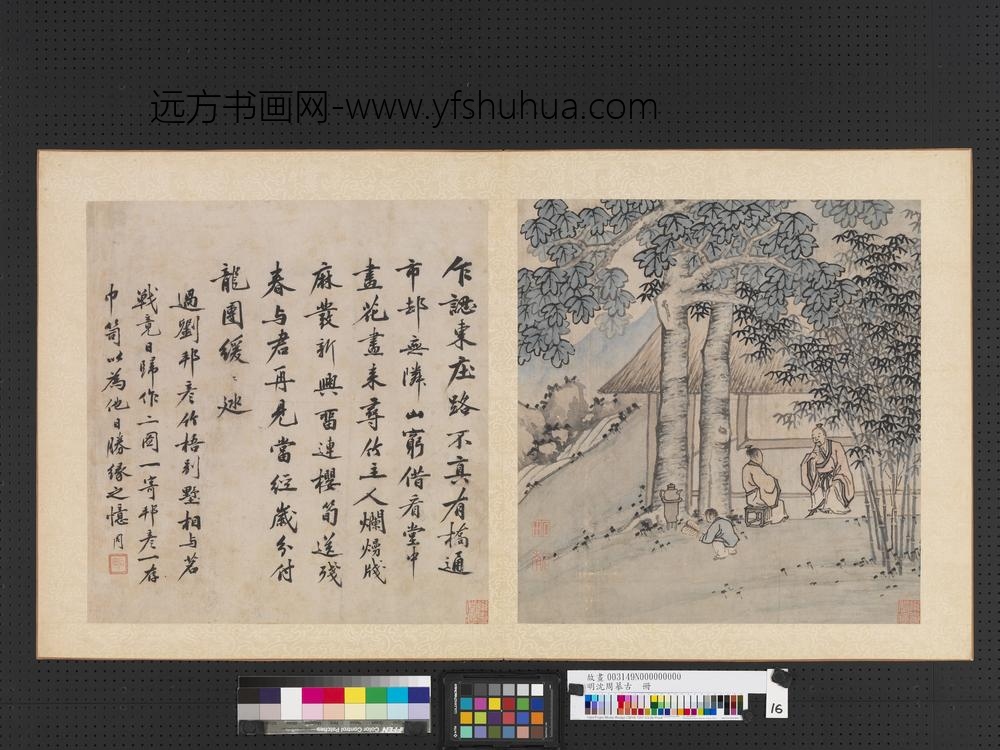 远方书画网-www.yfshuhua.com
乍認東庄路不真有橋通
市却無隣山窮借看堂中
畫花盡來尋竹主人爛熳牋
麻叢新興留連櫻筍送殘
春与君再見當經歲分付
龍團緩〻
過劉邦彥竹梧別墅相与茗
戰竟日歸作二圖一寄邦彥一存
巾笥以為他日勝緣之憶
故畫 003149N000000000
明沈周摹古 冊
16